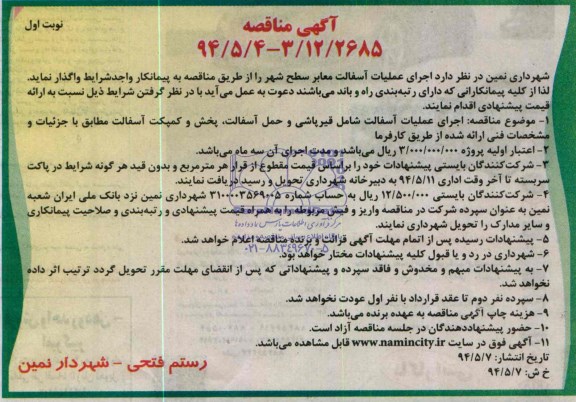 نوبت اول
آگهی مناقصه
۹۴/۵/۴-۳/۱۲/۲۶۸۵
شهرداری نمین در نظر دارد اجرای عملیات آسفالت معابر سطح شهر را از طریق مناقصه به پیمانکار واجدشرایط واگذار نماید.
لذا از کلیه پیمانکارانی که دارای رتبه‌بندی راه و باند می‌باشند دعوت به عمل می‌آید با در نظر گرفتن شرایط ذیل نسبت به ارائه
قیمت پیشنهادی اقدام نمایند.
۱- موضوع مناقصه: اجرای عملیات آسفالت شامل قیرپاشی و حمل آسفالت، پخش و کمپکت آسفالت مطابق با جزئیات و
مشخصات فنی ارائه شده از طریق کارفرما
۲- اعتبار اولیه پروژه ۳/۰۰۰/۰۰۰/۰۰۰ ریال می‌باشد و مدت اجرای آن سه ماه می‌باشد.
۳- شرکت‌کنندگان بایستی پیشنهادات خود را براساس قیمت مقطوع از قرار هر مترمربع و بدون قید هر گونه شرایط در پاکت
سربسته تا آخر وقت اداری ۹۴/۵/۱۱ به دبیرخانه شهرداری تحویل و رسید دریافت نمایند.
۴- شرکت‌کنندگان بایستی ۱۲/۵۰۰/۰۰۰ ریال به حساب شماره ۳۱۰۰۰۳۵۶۹۰۰۵ شهرداری نمین نزد بانک ملی ایران شعبه
نمین به عنوان سپرده شرکت در مناقصه واریز و فیش مربوطه را به همراه قیمت پیشنهادی و رتبه‌بندی و صلاحیت پیمانکاری
و سایر مدارک را تحویل شهرداری نمایند.
۵- پیشنهادات رسیده پس از اتمام مهلت آگهی قرائت و برنده مناقصه اعلام خواهد شد.
۶- شهرداری در رد و یا قبول کلیه پیشنهادات مختار خواهد بود.
۷- به پیشنهادات مبهم و مخدوش و فاقد سپرده و پیشنهاداتی که پس از انقضای مهلت مقرر تحویل گردد ترتیب اثر داده
نخواهد شد.
۸- سپرده نفر دوم تا عقد قرارداد با نفر اول عودت نخواهد شد.
۹- هزینه چاپ آگهی مناقصه به عهده برنده می‌باشد.
۱۰- حضور پیشنهاددهندگان در جلسه مناقصه آزاد است.
۱۱- آگهی فوق در سایت www.namincity.ir قابل مشاهده می‌باشد.
تاریخ انتشار: ۹۴/۵/۷
خ ش: ۹۴/۵/۷
رستم فتحی - شهردار نمین
۰۲۱-۸۸۳۴۹۶۷۰-۵